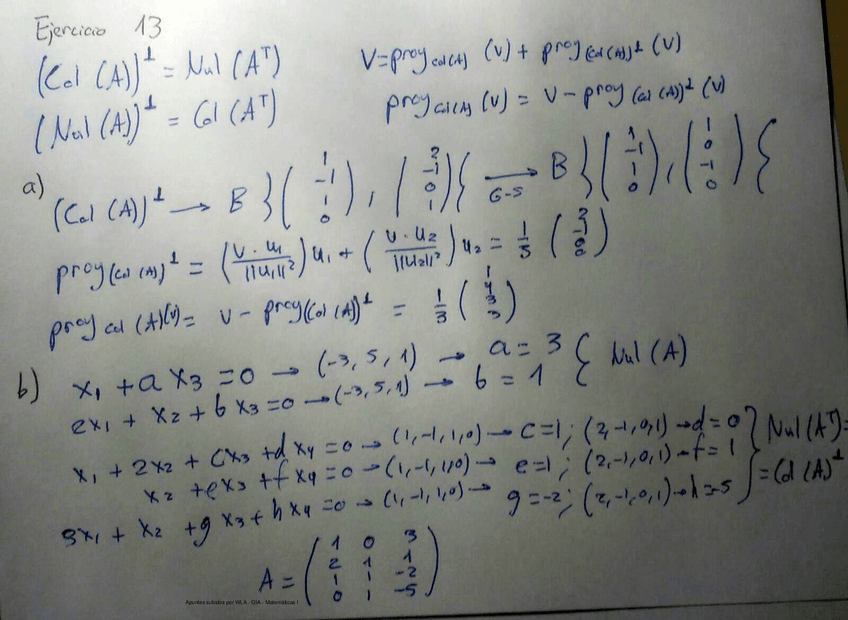 Ejercicio 13
(Col (A))^⊥ = Nul (A^T)
V = proy_{Col(A)} (v) + proy_{(Col(A))^⊥} (v)
(Nul (A))^⊥ = Col (A^T)
proy_{Col(A)} (v) = v - proy_{(Col(A))^⊥} (v)
a) (Col (A))^⊥ → B { (1 -1 1 0), (2 -1 0 1) { →_{G-S} B { (1 -1 1 0), (1 0 -1 0) {
proy_{(Col(A))^⊥} = (v · u_1 / ||u_1||^2) u_1 + (v · u_2 / ||u_2||^2) u_2 = 1/3
proy_{Col (A)}(v) = v - proy_{(Col(A))^⊥} = 1/3
b) x_1 + a x_3 = 0 → (-3, 5, 1) → a = 3 { Nul (A)
e x_1 + x_2 + b x_3 = 0 → (-3, 5, 1) → b = 1
x_1 + 2x_2 + c x_3 + d x_4 = 0 → (1, -1, 1, 0) → c = 1 ; (2, -1, 0, 1) → d = 0 } Nul (A^T) =
x_2 + e x_3 + f x_4 = 0 → (1, -1, 1, 0) → e = 1 ; (2, -1, 0, 1) → f = 1
= Col (A)^⊥
3x_1 + x_2 + g x_3 + h x_4 = 0 → (1, -1, 1, 0) → g = -2 ; (2, -1, 0, 1) → h = -5
A = ( 1 0 3
2 1 1
1 1 -2
0 1 -5 )
Apuntes subidos por WLA - GIA - Matemáticas I